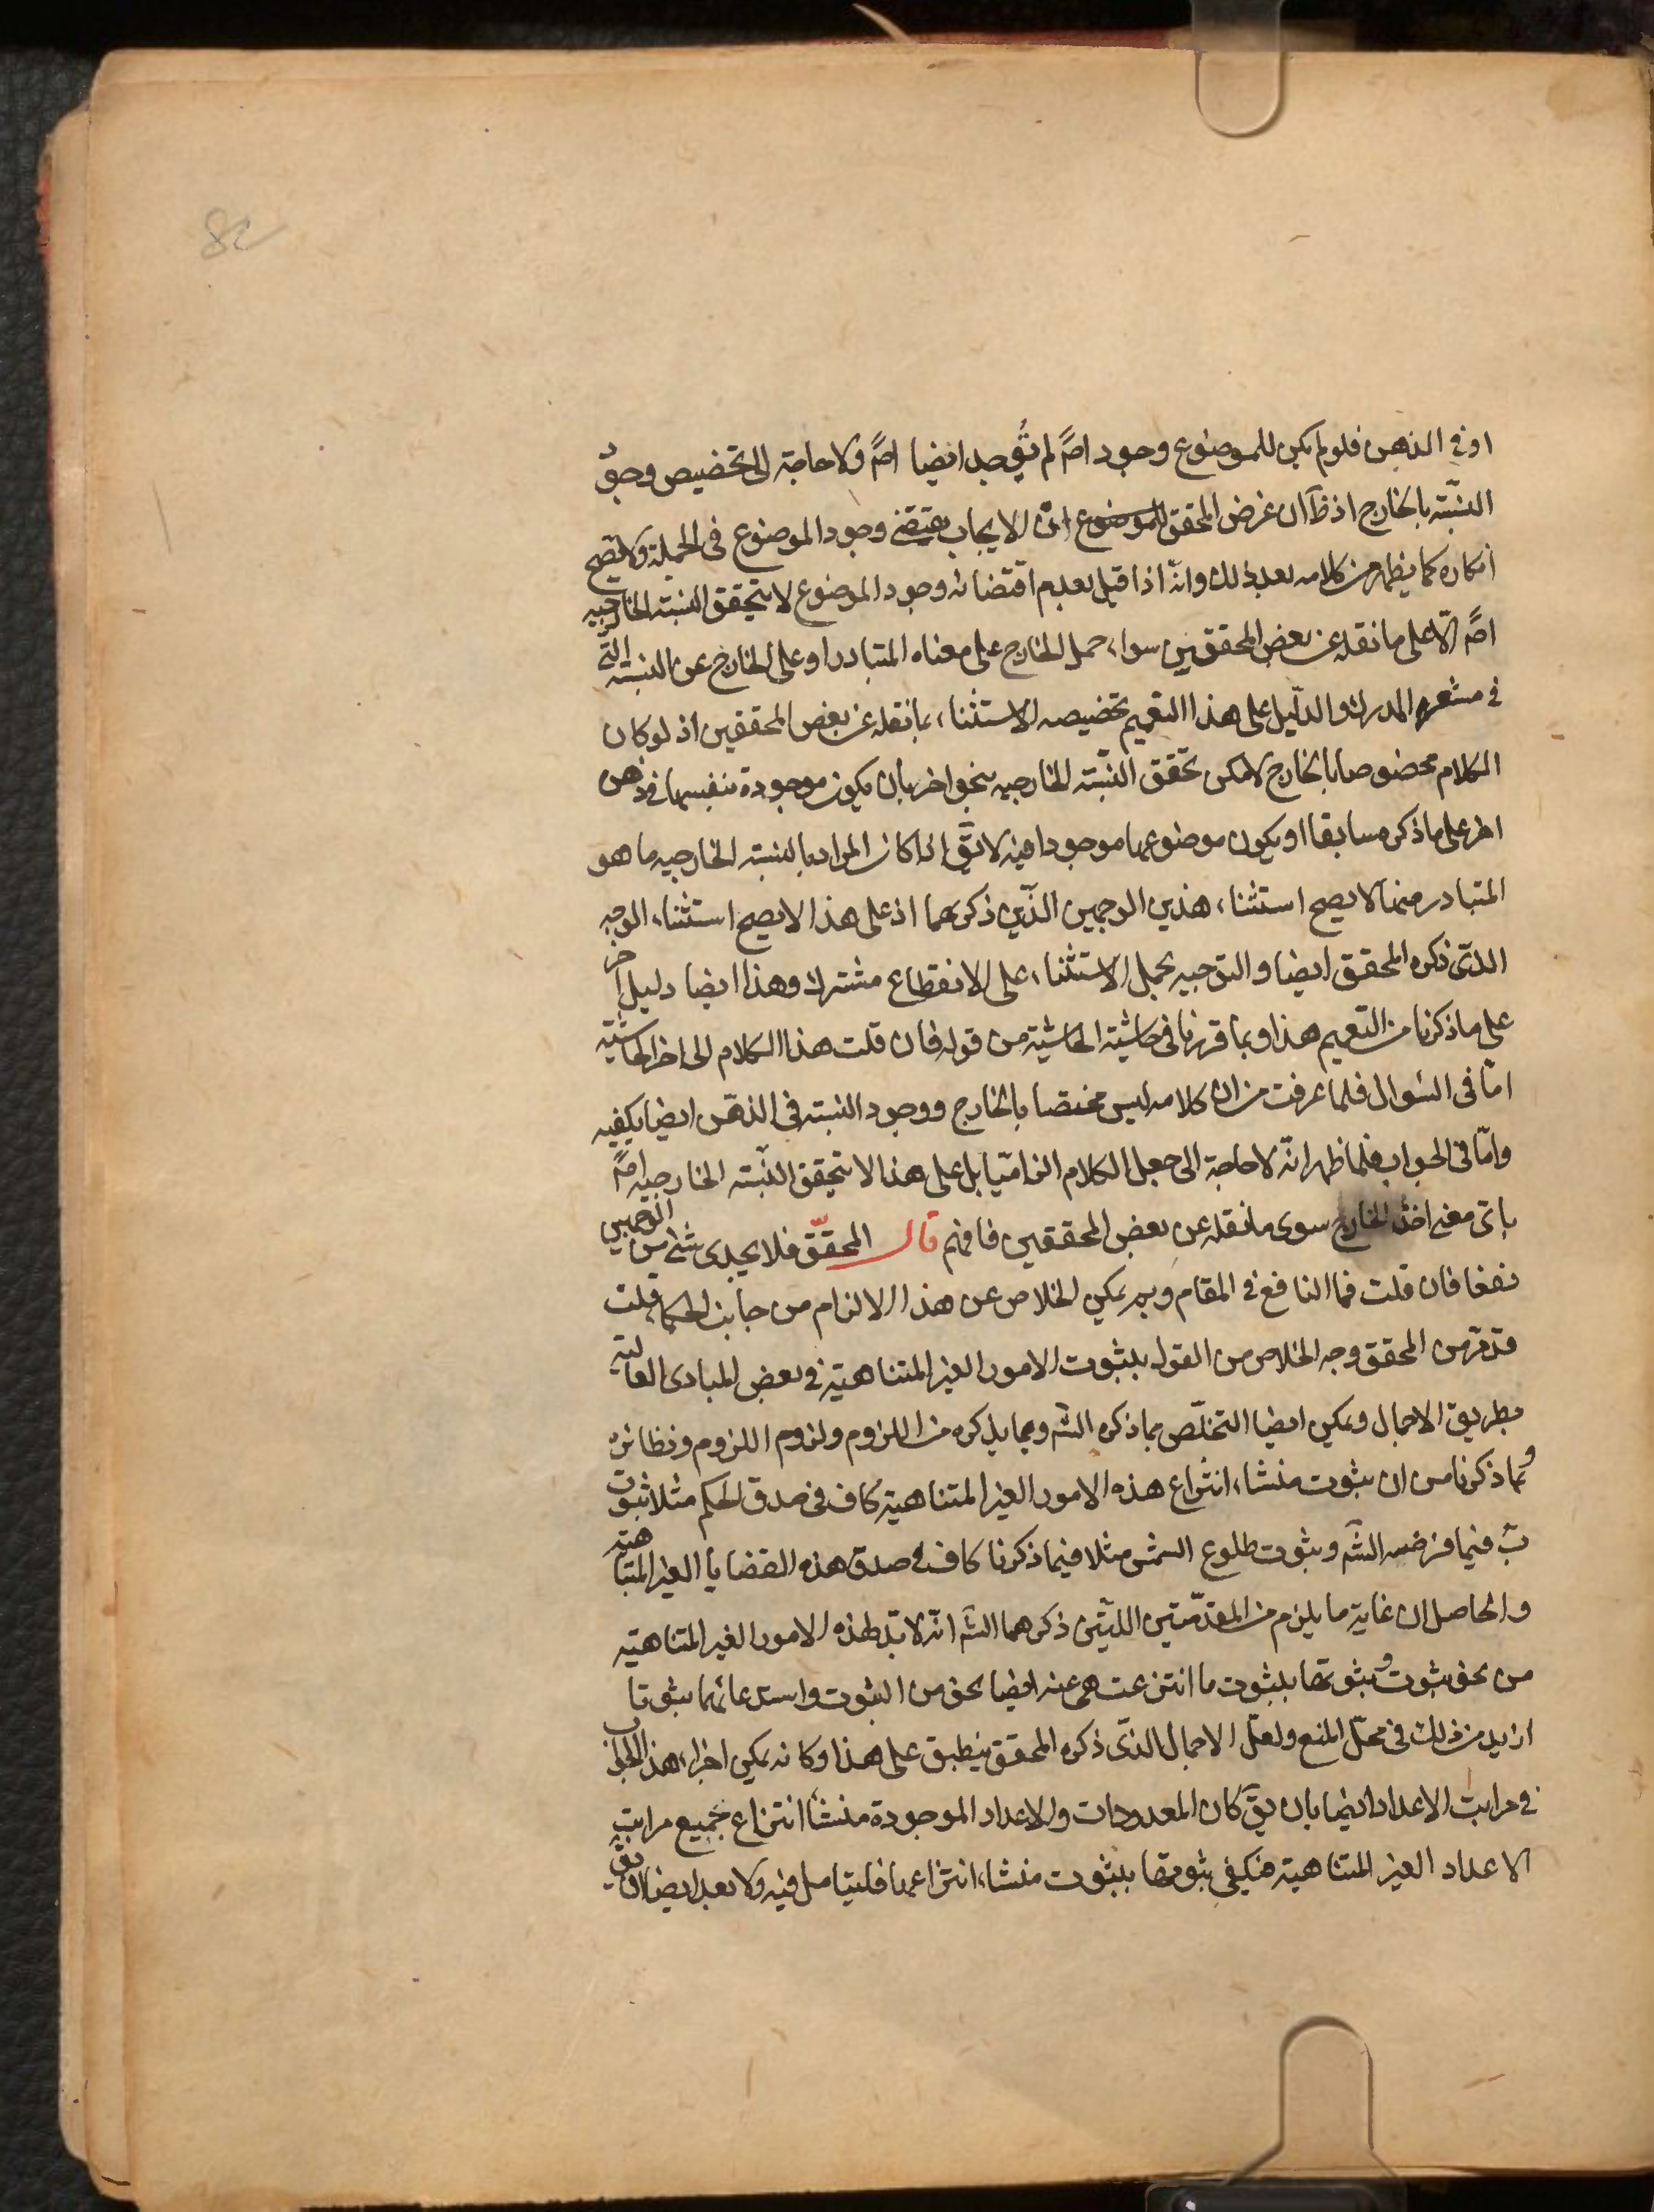 82
او فى الذهن فلو لم يكن للموضوع وجود اصً لم توجد ايضا اصً ولا حاجة الى تخصيص وجود
النسبته بالخارج اذ ظَ ان غرض المحقق للموضوع انّ الايجاب يقتضى وجود الموضوع فى الجملة ولا يصح
انكاره كما يظهر من كلامه بعد ذلك وانه اذا قيل بعدم اقتضائه وجود الموضوع لا يتحقق النسبته الخارجيه
اصً الّا على ما نقله عن بعض المحققين سواء حمل الخارج على معناه المتبادر او على الخارج عن النسبته التى
فى مشعر المدرك والدليل على هذا التعميم تخصيصه الاستثناء بما نقله عن بعض المحققين اذ لو كان
الكلام مخصوصا بالخارج لامكن تحقق النسبته الخارجيه بنحو اخر بان يكون موجودة بنفسها فى ذهن
اخر على ما ذكره سابقا او يكون موضوعها موجودا فيه لا يقَ اذا كان المراد بالنسبته الخارجيه ما هو
المتبادر منها لا يصح استثناء هذين الوجهين الذين ذكرهما اذ على هذا لا يصح استثناء الوجه
الذى ذكره المحقق ايضا والتوجيه بحمل الاستثناء على الانقطاع مشترك وهذا ايضا دليل اخر
على ما ذكرنا من التعميم هذا وبما قررنا فى حاشية الحاشية من قوله فان قلت هذا الكلام الى اخر الحاشية
امّا فى السؤال فلما عرفت من ان كلامه ليس مختصا بالخارج ووجود النسبته فى الذهن ايضا يكفيه
وامّا فى الجواب فلما ظهر انّه لا حاجة الى جعل الكلام الزاميّا بل على هذا لا يتحقق النسبته الخارجيه اصً
باى معنى اخذ الخارج سوى ما نقله عن بعض المحققين فافهم قال المحقّق فلا يجدى شئ من الوجهين
نفعا فان قلت فما النافع فى المقام وبم يمكن الخلاص عن هذا الالزام من جانب الحكماء قلت
قد مرّ من المحقق وجه الخلاص من القول بثبوت الامور الغير المتناهية فى بعض المبادى العالية
بطريق الاجمال ويمكن ايضا التخلّص بما ذكره الشَه وبما يذكره من اللزوم ولزوم اللزوم ونظائره
وبما ذكرنا من ان ثبوت منشاء انتزاع هذه الامور الغير المتناهية كاف فى صدق الحكم مثلا ثبوت
بَ فيما فرضه الشَه وثبوت طلوع الشمس مثلا فيما ذكرنا كاف فى صدق هذه القضايا الغير المتناهته
والحاصل ان غاية ما يلزم من المقدّمتين اللتين ذكرهما الشَه انّه لا بدّ لهذه الامور الغير المتناهته
من نحو ثبوت وثبوتها بثبوت ما انتزعت هى عنه ايضا نحو من الثبوت واستدعائها ثبوتا
ازيد من ذلك فى محلّ المنع ولعلّ الاجمال الذى ذكره المحقق ينطبق على هذا وكانه يمكن اجراء هذا الجواب
فى مراتب الاعداد ايضا بان يقَ كان المعدودات والاعداد الموجودة منشا انتزاع جميع مراتب
الاعداد الغير المتناهية فيكفى ثبوتها بثبوت منشاء انتزاعها فليتامل فيه ولا بعد ايضا ان يقَ